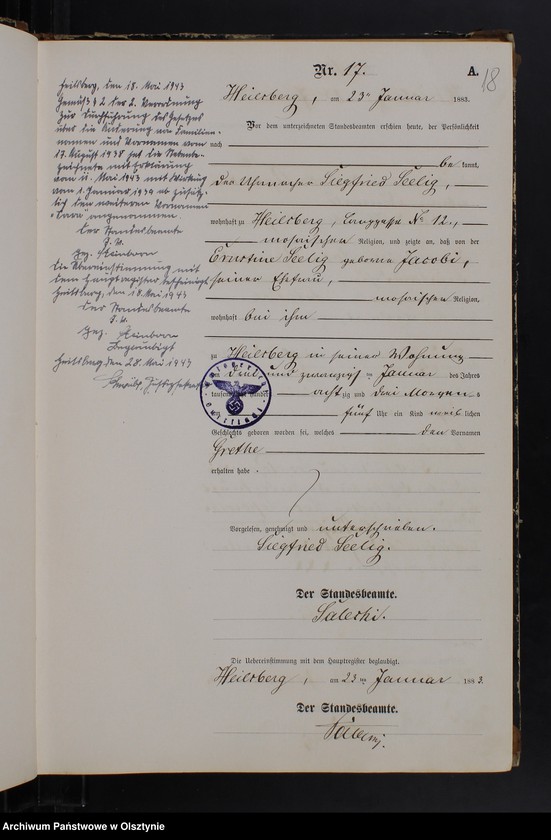 Nr. 17.
A.
18
Heilsberg, am 23ten Januar 1883.
Vor dem unterzeichneten Standesbeamten erschien heute, der Persönlichkeit
nach
be kannt,
der Uhrmacher Siegfried Seelig,
wohnhaft zu Heilsberg, Langgasse No 12.,
mosaischen Religion, und zeigte an, daß von der
Ernestine Seelig geborne Jacobi,
seiner Ehefrau,
mosaischen Religion,
wohnhaft bei ihm
zu Heilsberg in seiner Wohnung
am drei und zwanzigsten Januar des Jahres
tausend acht hundert acht zig und drei Morgens
fünf Uhr ein Kind weib lichen
Geschlechts geboren worden sei, welches den Vornamen
Grethe
erhalten habe.
Vorgelesen, genehmigt und unterschrieben.
Siegfried Seelig.
Der Standesbeamte.
Die Uebereinstimmung mit dem Hauptregister beglaubigt.
Heilsberg, am 23ten Januar 1883.
Der Standesbeamte.
Heilsberg, den 18. Mai 1943
Gemäß § 2 der 2. Verordnung
zur Durchführung des Gesetzes
über die Änderung von Familien-
namen und Vornamen vom
17. August 1938 hat die Nebenbe-
zeichnete mit Erklärung
vom 11. Mai 1943 mit Wirkung
vom 1. Januar 1939 ab zusätz-
lich den weiteren Vornamen
"Sara" angenommen.
Der Standesbeamte
J. V.
gez. Steinborn
Die Übereinstimmung mit
dem Hauptregister bescheinigt
Heilsberg, den 18. Mai 1943
Der Standesbeamte
J. V.
gez. Steinborn
Beglaubigt
Heilsberg, den 28. Mai 1943
Justizsekretär
Archiwum Państwowe w Olsztynie